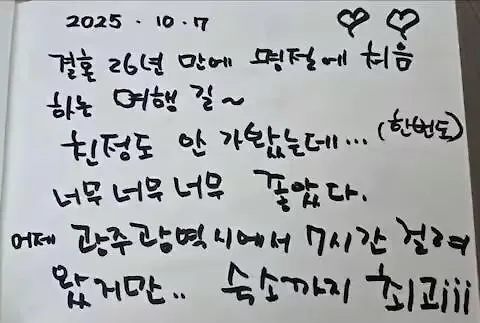 2025 . 10 . 7 ♡♡
결혼 26년 만에 명절에 처음
하는 여행 길~
친정도 안 가봤는데... (한번도)
너무너무너무 좋았다.
어제 광주광역시에서 7시간 걸려
왔지만.. 숙소까지 최고iii